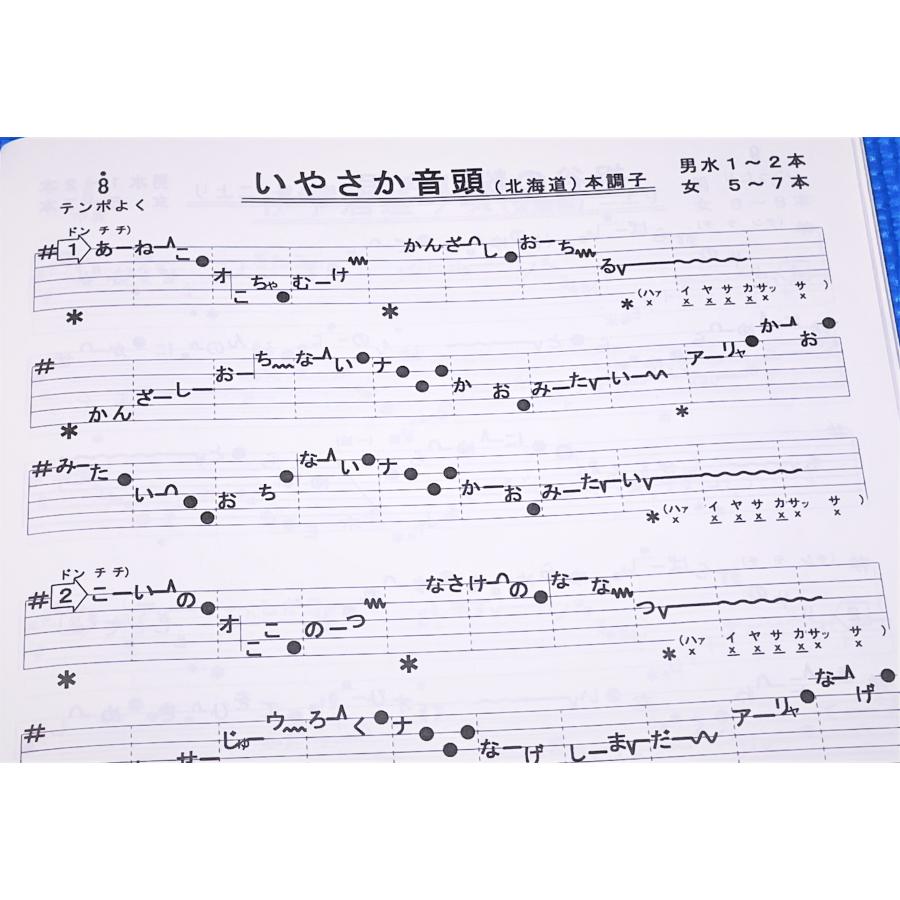 いやさか音頭(北海道)本調子
男水1～2本
女 5～7本
8
テンポよく
ドン チ チ)
# 1 あーねーこ オこちゃむーけ かんざーし おーち る
* * * (ハァ イ ヤ サ カ サッ サ )
x x x x x x x
# かんざーしーおーちーなーい ナ か おみーたーいー アーリャ かー お
* *
# みーた いー お ち なーい ナ かーおみーたーい
* (ハァ イ ヤ サ カ サッ サ )
x x x x x x x
ドン チ チ)
# 2 こーいーの オここのーつ なさけーの なーな つ
* * * (ハァ イ ヤ サ カ サッ サ )
x x x x x x x
# サーじゅーウーろーく ナ なーげ しーまーだー アーリャ なー げ